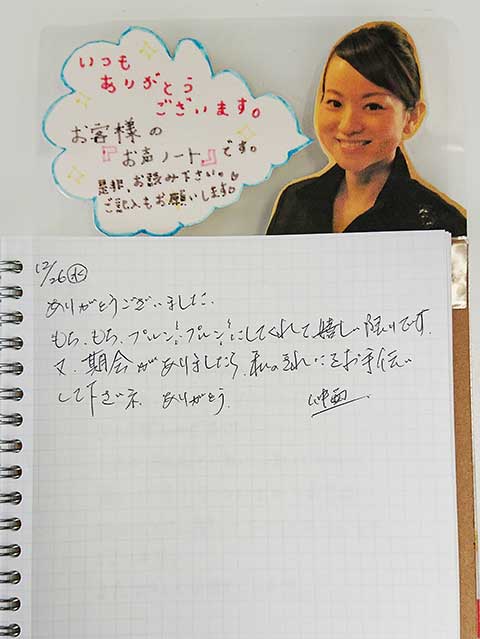 いつも
ありがとう
ございます。
お客様の
『お声ノート』です。
是非お読み下さい。
ご記入もお願いします。
12/26㊌
ありがとうございました.
もち、もち、プルン!プルン!にしてくれて嬉しい限りです.
又、期会がありましたら、私のきれいをお手伝い
して下さネ ありがとう.